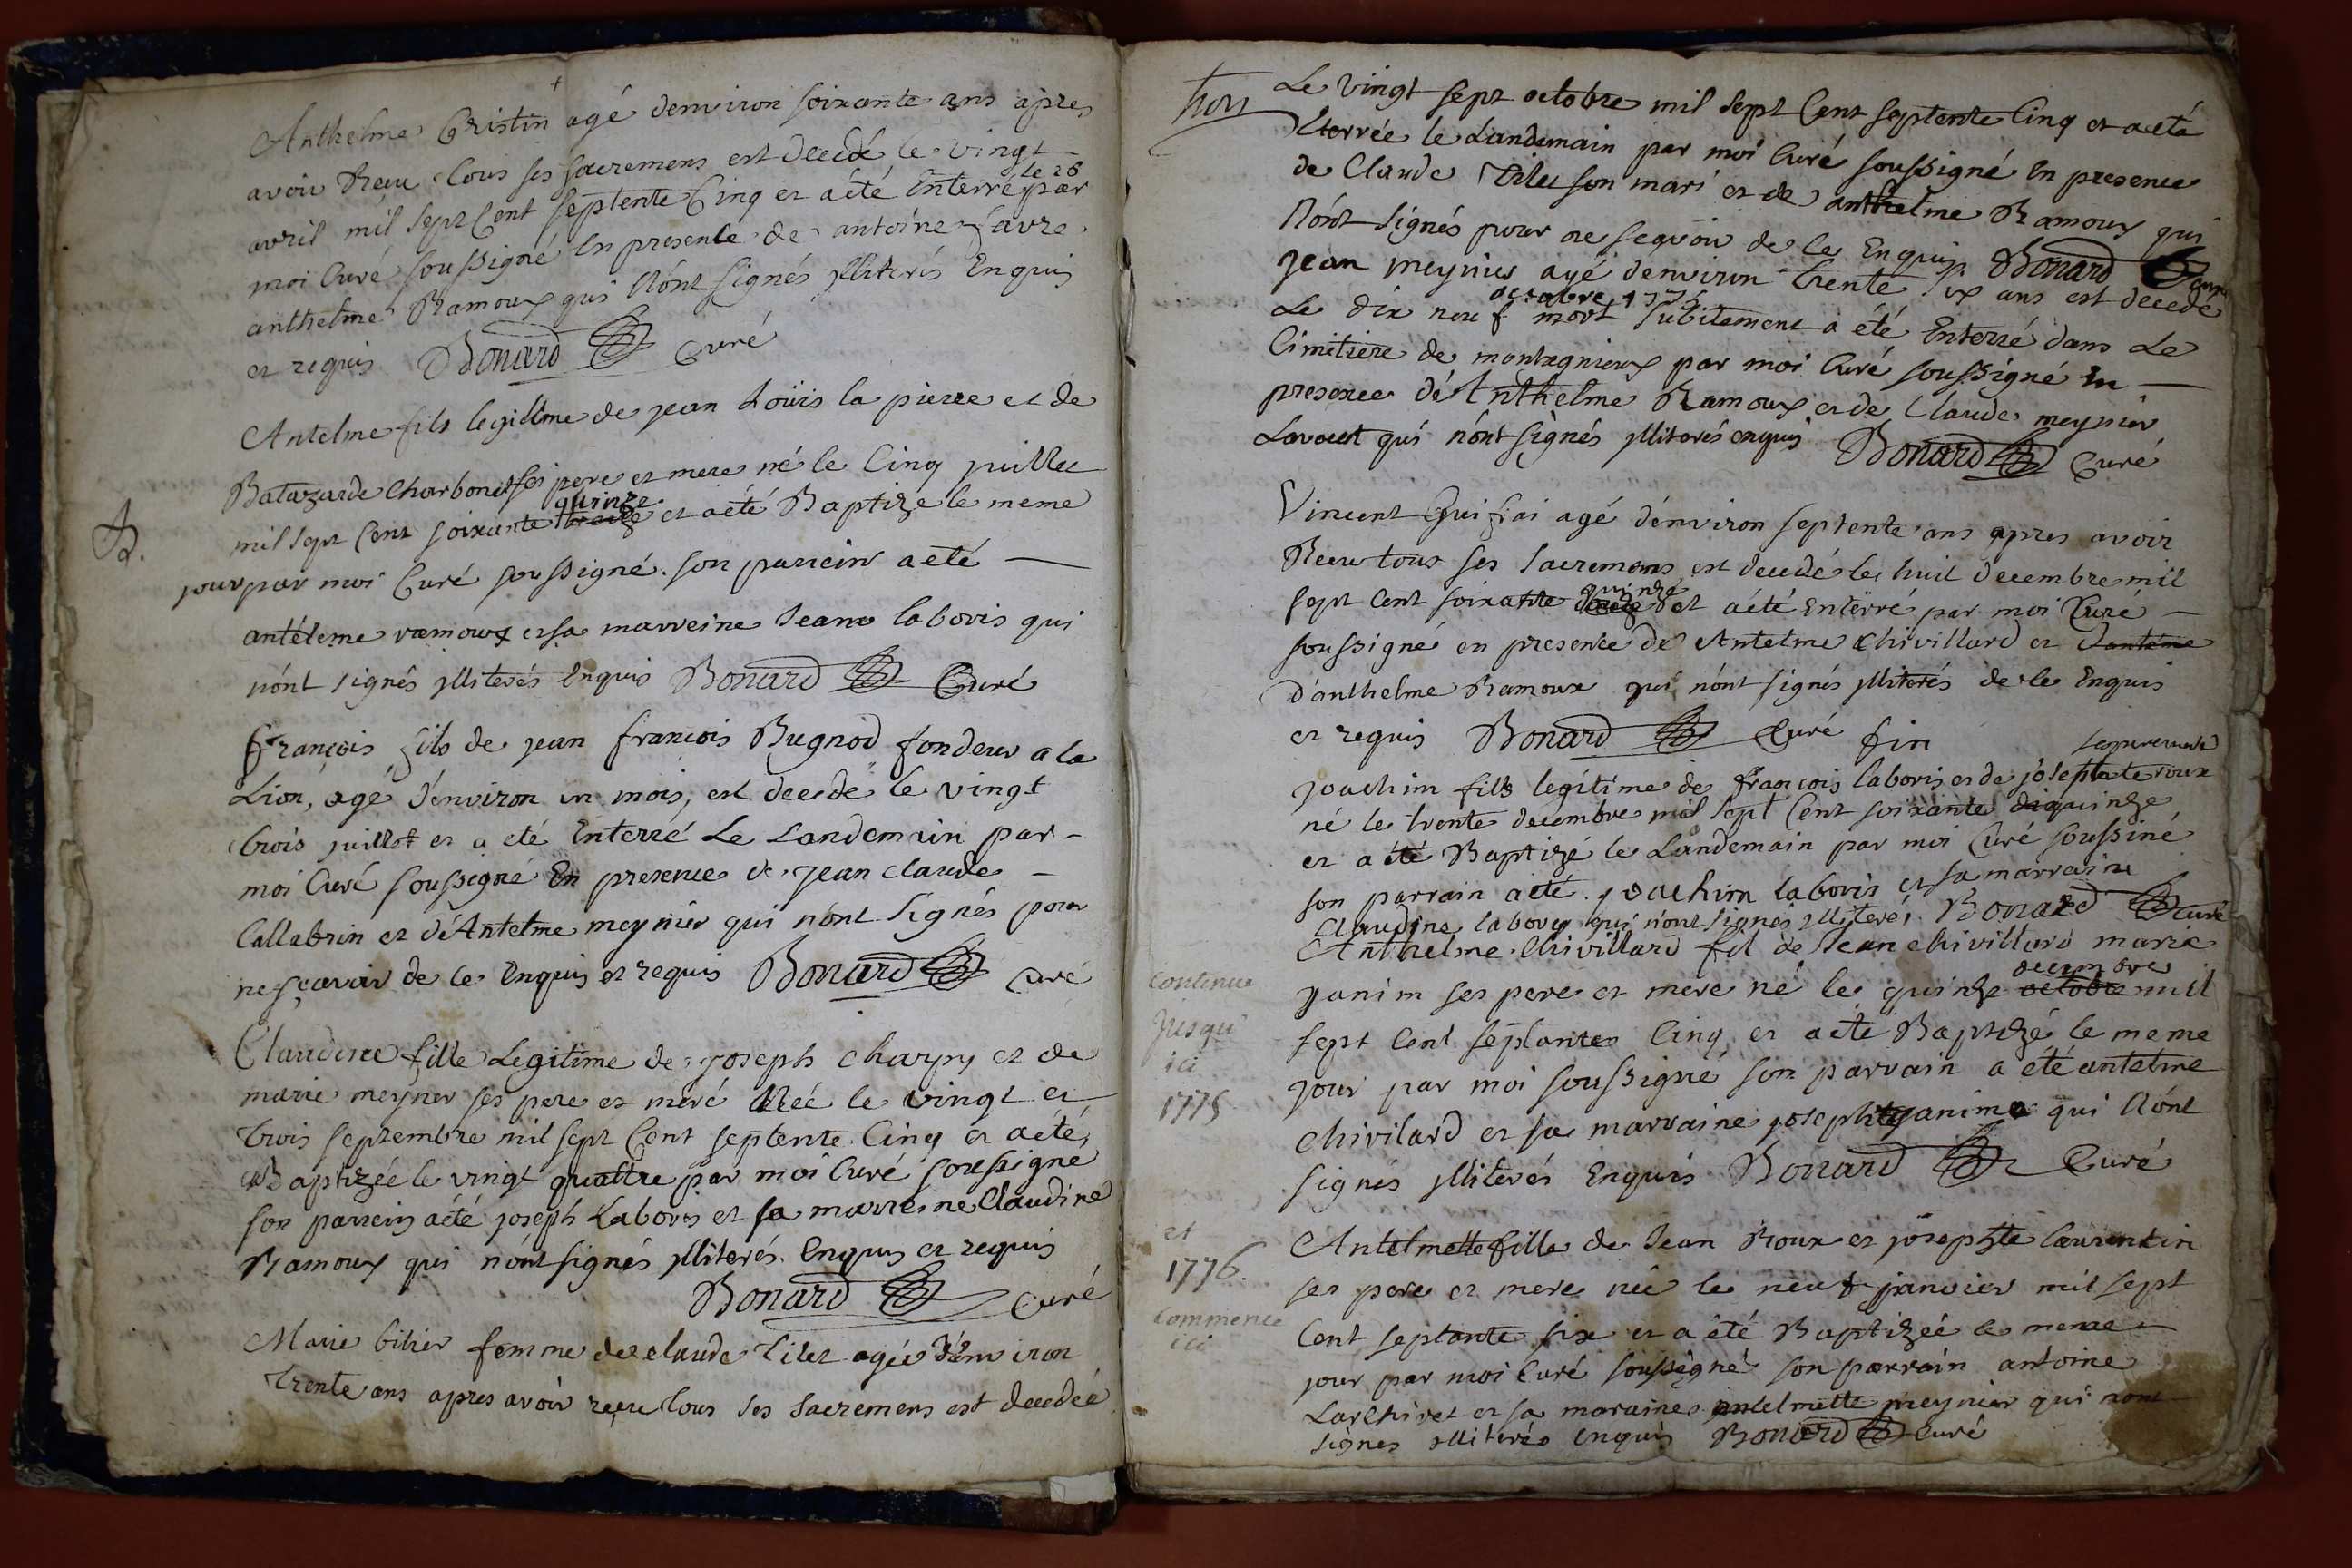 Anthelme Cristin agé denviron soixante ans apres
avoir Recu tous ses sacremens est decedé le vingt
avril mil sept Cent septente Cinq et aété Enterré le 28 par
moi Curé soussigné En presence de antoine favre
anthelme Ramoux qui Nónt signés jlliterés Enquis
et requis Bonard Curé
Antelme fils legitime de jean Loüis la pierre et de
Batazarde Charbonet ses pere et mere né le Cinq juillet
mil sept Cent soixante quinze et aété Baptizé le meme
B.
jour par moi Curé soussigné. son parrein a eté
antéleme ramoux et sa marreine Jeane laboris qui
nónt signés jlliterés Enquis Bonard Curé
François fils de jean françois Bugnod fondeur a la
Lion, agé d'environ un mois, est decedé le vingt
trois juillet et a eté Enterré Le Landemain par
moi Curé soussigné En presence de jean claude
Callabrin et d'Antelme meynier qui nónt signés pour
ne sçavoir de ce Enquis et requis Bonard Curé
Claudine fille Legitime de joseph charpy et de
marie meyner ses pere et meré Née le vingt et
trois septembre mil sept Cent septente Cinq et aété
Baptizée le vingt quattre par moi Curé soussigné
son parrein aété joseph Laboris et sa marreine Claudine
Ramoux qui nónt signés jlliterés. Enquis et requis
Bonard Curé
Marie bilier femme de claude Tilet agée d'environ
Trente ans apres avoir reçu tous ses sacremens est decedée
Le vingt sept octobre mil sept Cent septente Cinq et aété
Eterrée le Landemain par moi Curé soussigné En presence
de Claude Tilet son mari et de anthelme Ramoux qui
Nónt signés pour ne sçavoir de ce Enquis. Bonard Curé
jean meynier agé d'environ trente six ans est decedé
octobre 1775
Le dix neuf mort subitement a été Enterré dans Le
Cimetiere de montagnieux par moi Curé soussigné En
presence d'Anthelme Ramoux et de Claude meynier
Lavout qui nónt signés jlliterés enquis Bonard Curé
Vincent Guifrai agé d'environ septente ans apres avoir
Recu tous ses sacremens est decedé le huit decembre mil
sept Cent soixante quinze et aété Enterré par moi Curé
soussigné en presence de Antelme Chivillard et d'antéme
d'anthelme Ramoux qui nónt signés jlliterés de ce Enquis
et requis Bonard Curé fin
joachim fills legitime de françois laboris et de josephte roux
né le trente decembre mil sept Cent soixante quindze
et a été Baptizé le Landemain par moi Curé soussiné
son parrain aété joachim laboris et sa marraine
Claudine laborys qui n'ont signes jlliterés. Bonard Curé
Anthelme Chivillard fil de Jean chivillard marie
decembre
janim ses pere et mere né le quindze octobre mil
continue
jusqu'
ici
1775
sept Cent septantes Cinq et aété Baptizé le meme
jour par moi soussigné son parrain a eté antelme
chivilard et sa marraine josephte janime qui Nónt
signés jlliterés Enquis Bonard Curé
et
1776.
commence
ici
Antelmette fille de Jean Roux et josephte Laurentin
ses pere et mere née le neuf janvier mil sept
Cent septante six et a été Baptizeé le meme
jour par moi Curé soussigné son parrain antoine
Larchivet et sa maraine antelmette meynier qui nont
signes jlliterés Enquis Bonard Curé